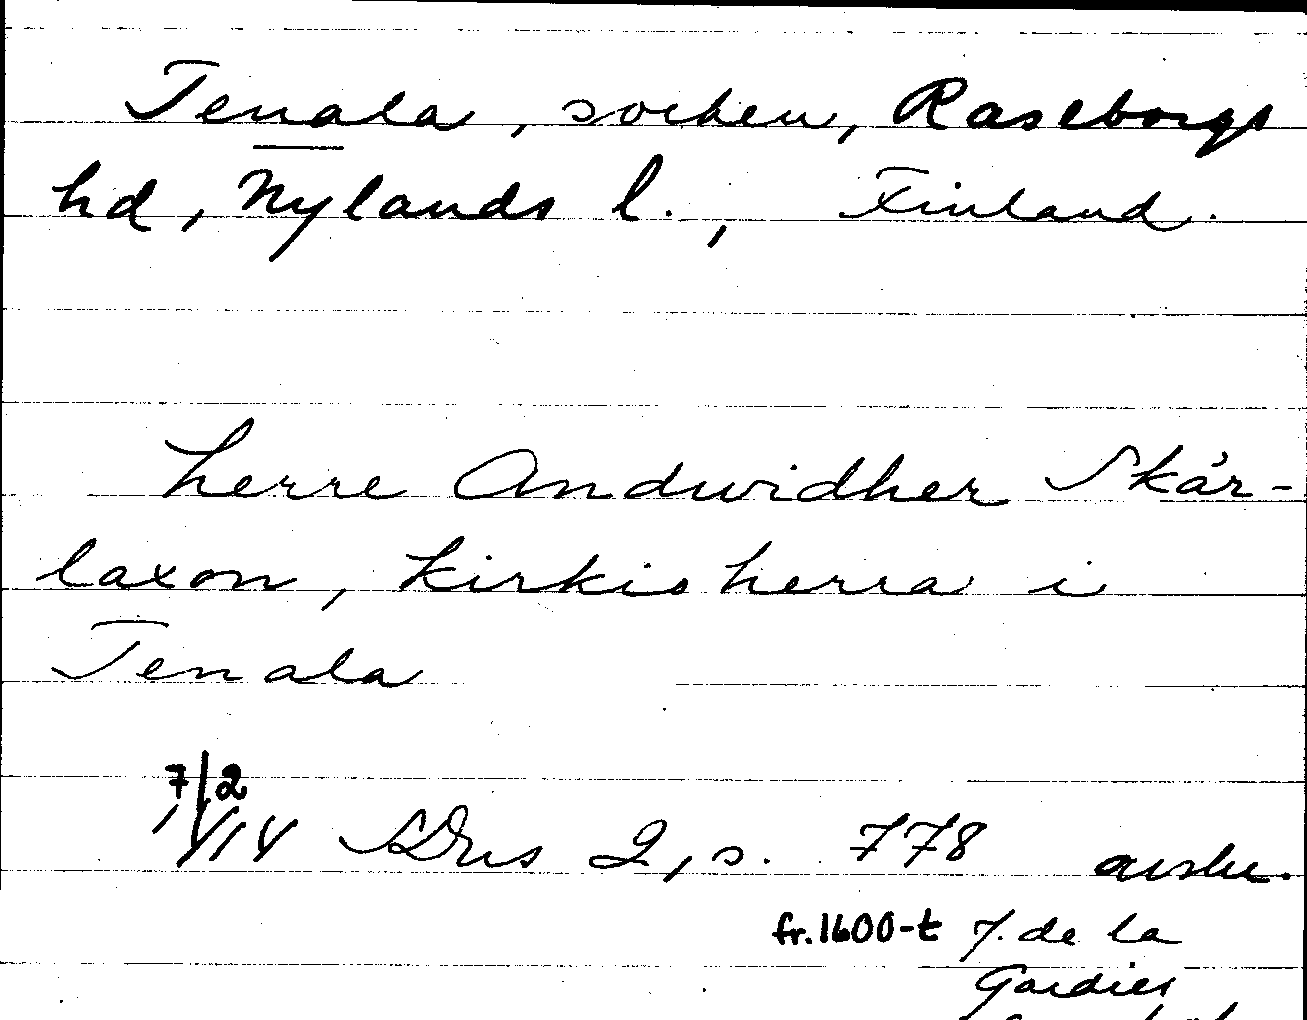 Tenala, socken, Raseborgs
hd, Nylands l., Finland.
herre Andwidher Skår-
laxon, kirkisherra i
Tenala
7/2
1414 SDns 2, s. 778 avskr.
fr. 1600-t J. de la
Gardies